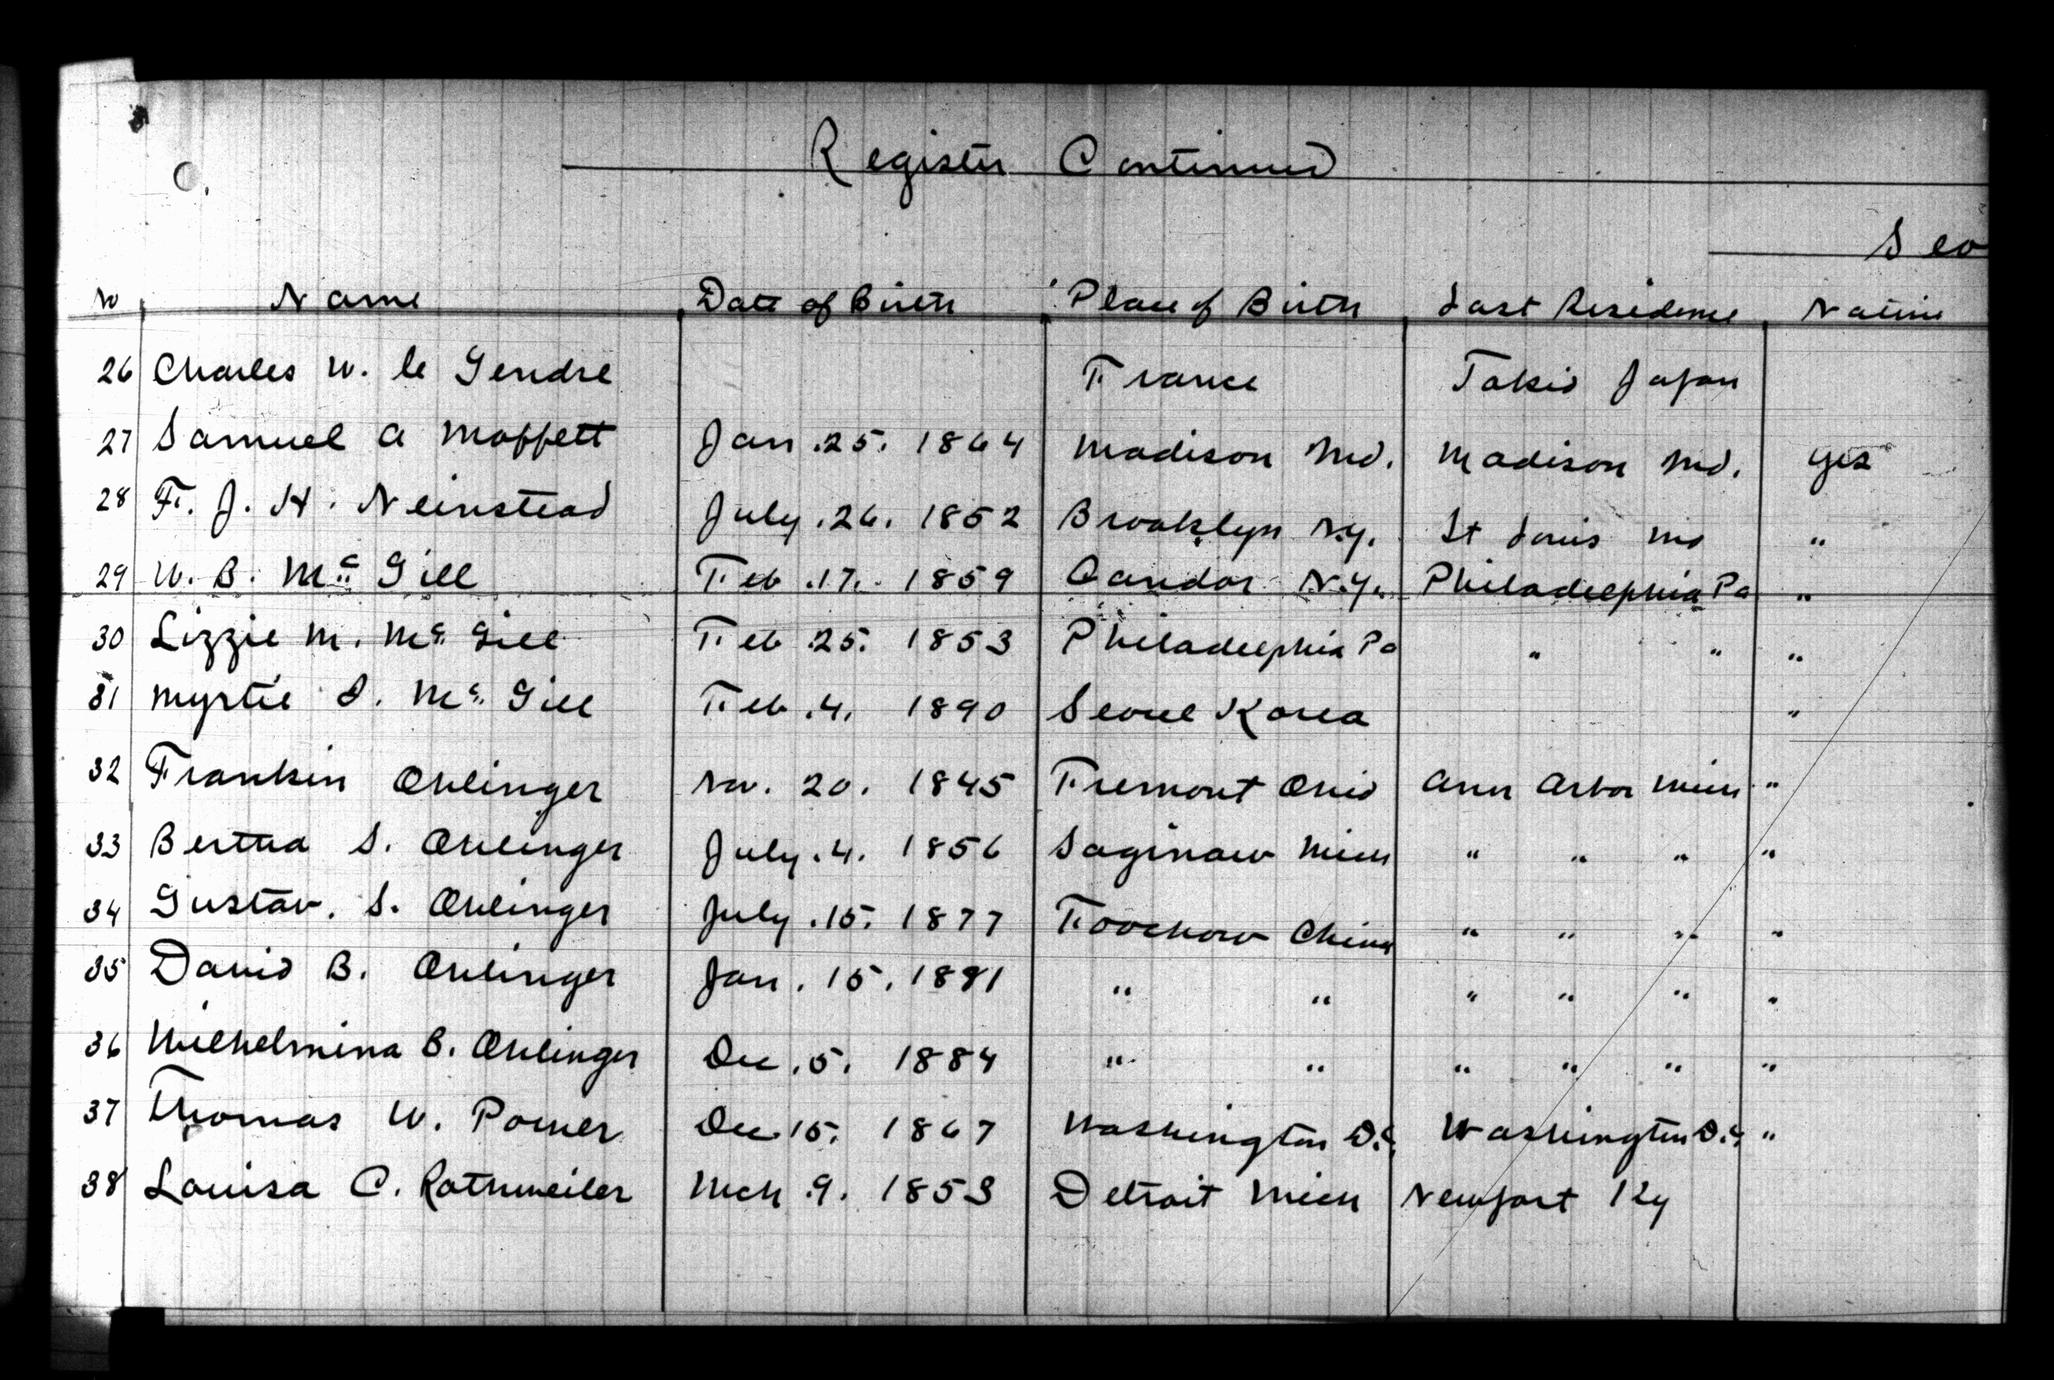 Register Continued
Seo
No Name Date of Birth Place of Birth Last Residence Native
26 Charles W. le Gendre France Tokio Japan
27 Samuel A Moffett Jan. 25. 1864 Madison Ind. Madison Ind. yes
28 F. J. H. Neinstead July. 26. 1852 Brooklyn N.Y. St Louis Mo "
29 W. B. McGill Feb. 17. 1859 Candor N.Y. Philadelphia Pa "
30 Lizzie M. McGill Feb 25. 1853 Philadelphia Pa " " "
31 Myrtie McGill Feb. 4. 1890 Seoul Korea "
32 Frankin Ohlinger Nov. 20. 1845 Fremont Ohio Ann Arbor Mich "
33 Bertha S. Ohlinger July. 4. 1856 Saginaw Mich " " " "
34 Gustav. S. Ohlinger July. 15. 1877 Foochow China " " " "
35 David B. Ohlinger Jan. 15. 1881 " " " " " "
36 Wilhelmina B. Ohlinger Dec. 5. 1884 " " " " " "
37 Thomas W. Power Dec 15. 1867 Washington D.C. Washington D.C. "
38 Louisa C. Rothweiler Mch. 9. 1853 Detroit Mich Newport Ky